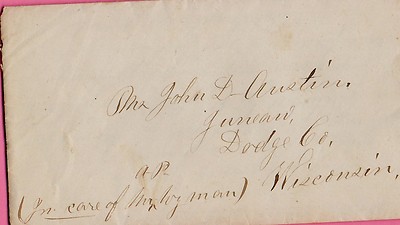 Mr John D Austin.
Juneau,
Dodge Co,
(In care of Mr A P Wyman) Wisconsin,